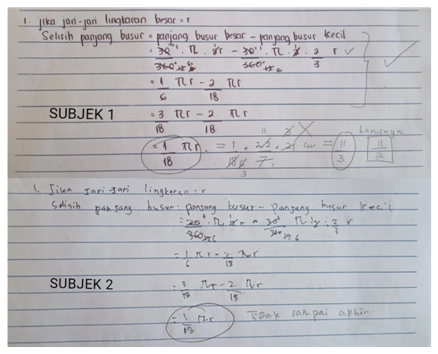 1. jika jari-jari lingkaran besar = r
Selisih panjang busur = panjang busur besar - panjang busur kecil
= 30°/360° · π · 2r - 30°/360° · π · 2 · 2/3 r
= 1/6 πr - 2/18 πr
SUBJEK 1
= 3/18 πr - 2/18 πr
= 1/18 πr = 1/18 · 22/7 · = 11/3
harusnya 11/3
1. Jika Jari-Jari lingkaran = r
Selisih panjang busur = panjang busur - Panjang busur kecil
= 30°/360 · π · 2r - 30°/360 · π · 2 · 2/3 r
= 1/6 πr - 2/18 πr
SUBJEK 2
= 3/18 πr - 2/18 πr
= 1/18 πr
Tidak sampai akhir.